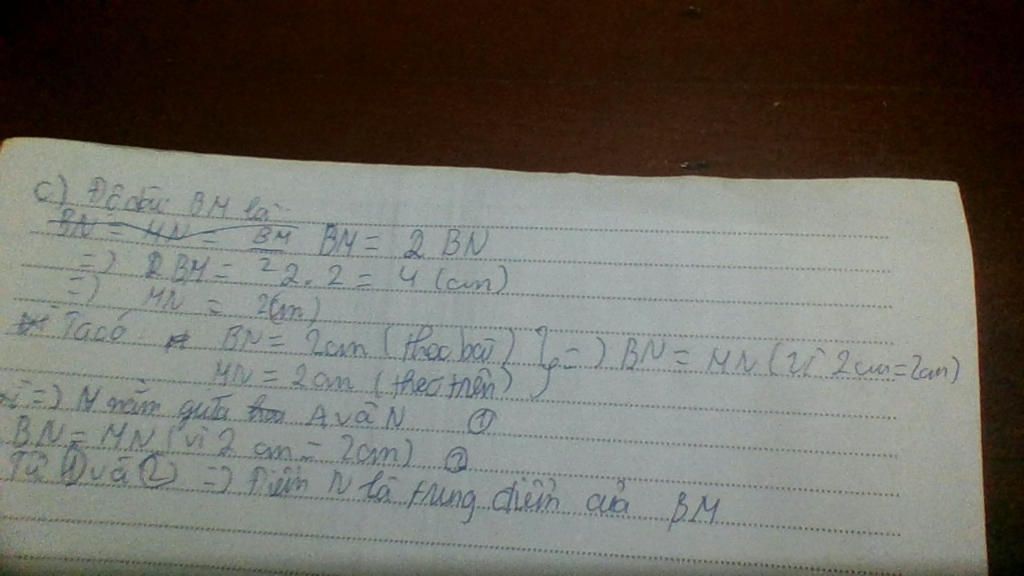 c) Độ dài BM là
BN = MN = BM/2 BM = 2 BN
=) 2 BM = 2.2 = 4 (cm)
=) MN = 2(cm)
Ta có BN = 2cm (theo bài) } =) BN = MN (vì 2cm=2cm)
MN = 2cm (theo trên)
=) N nằm giữa A và N ①
BN = MN (vì 2 cm = 2cm) ②
Từ ① và (2) =) Điểm N là trung điểm của BM